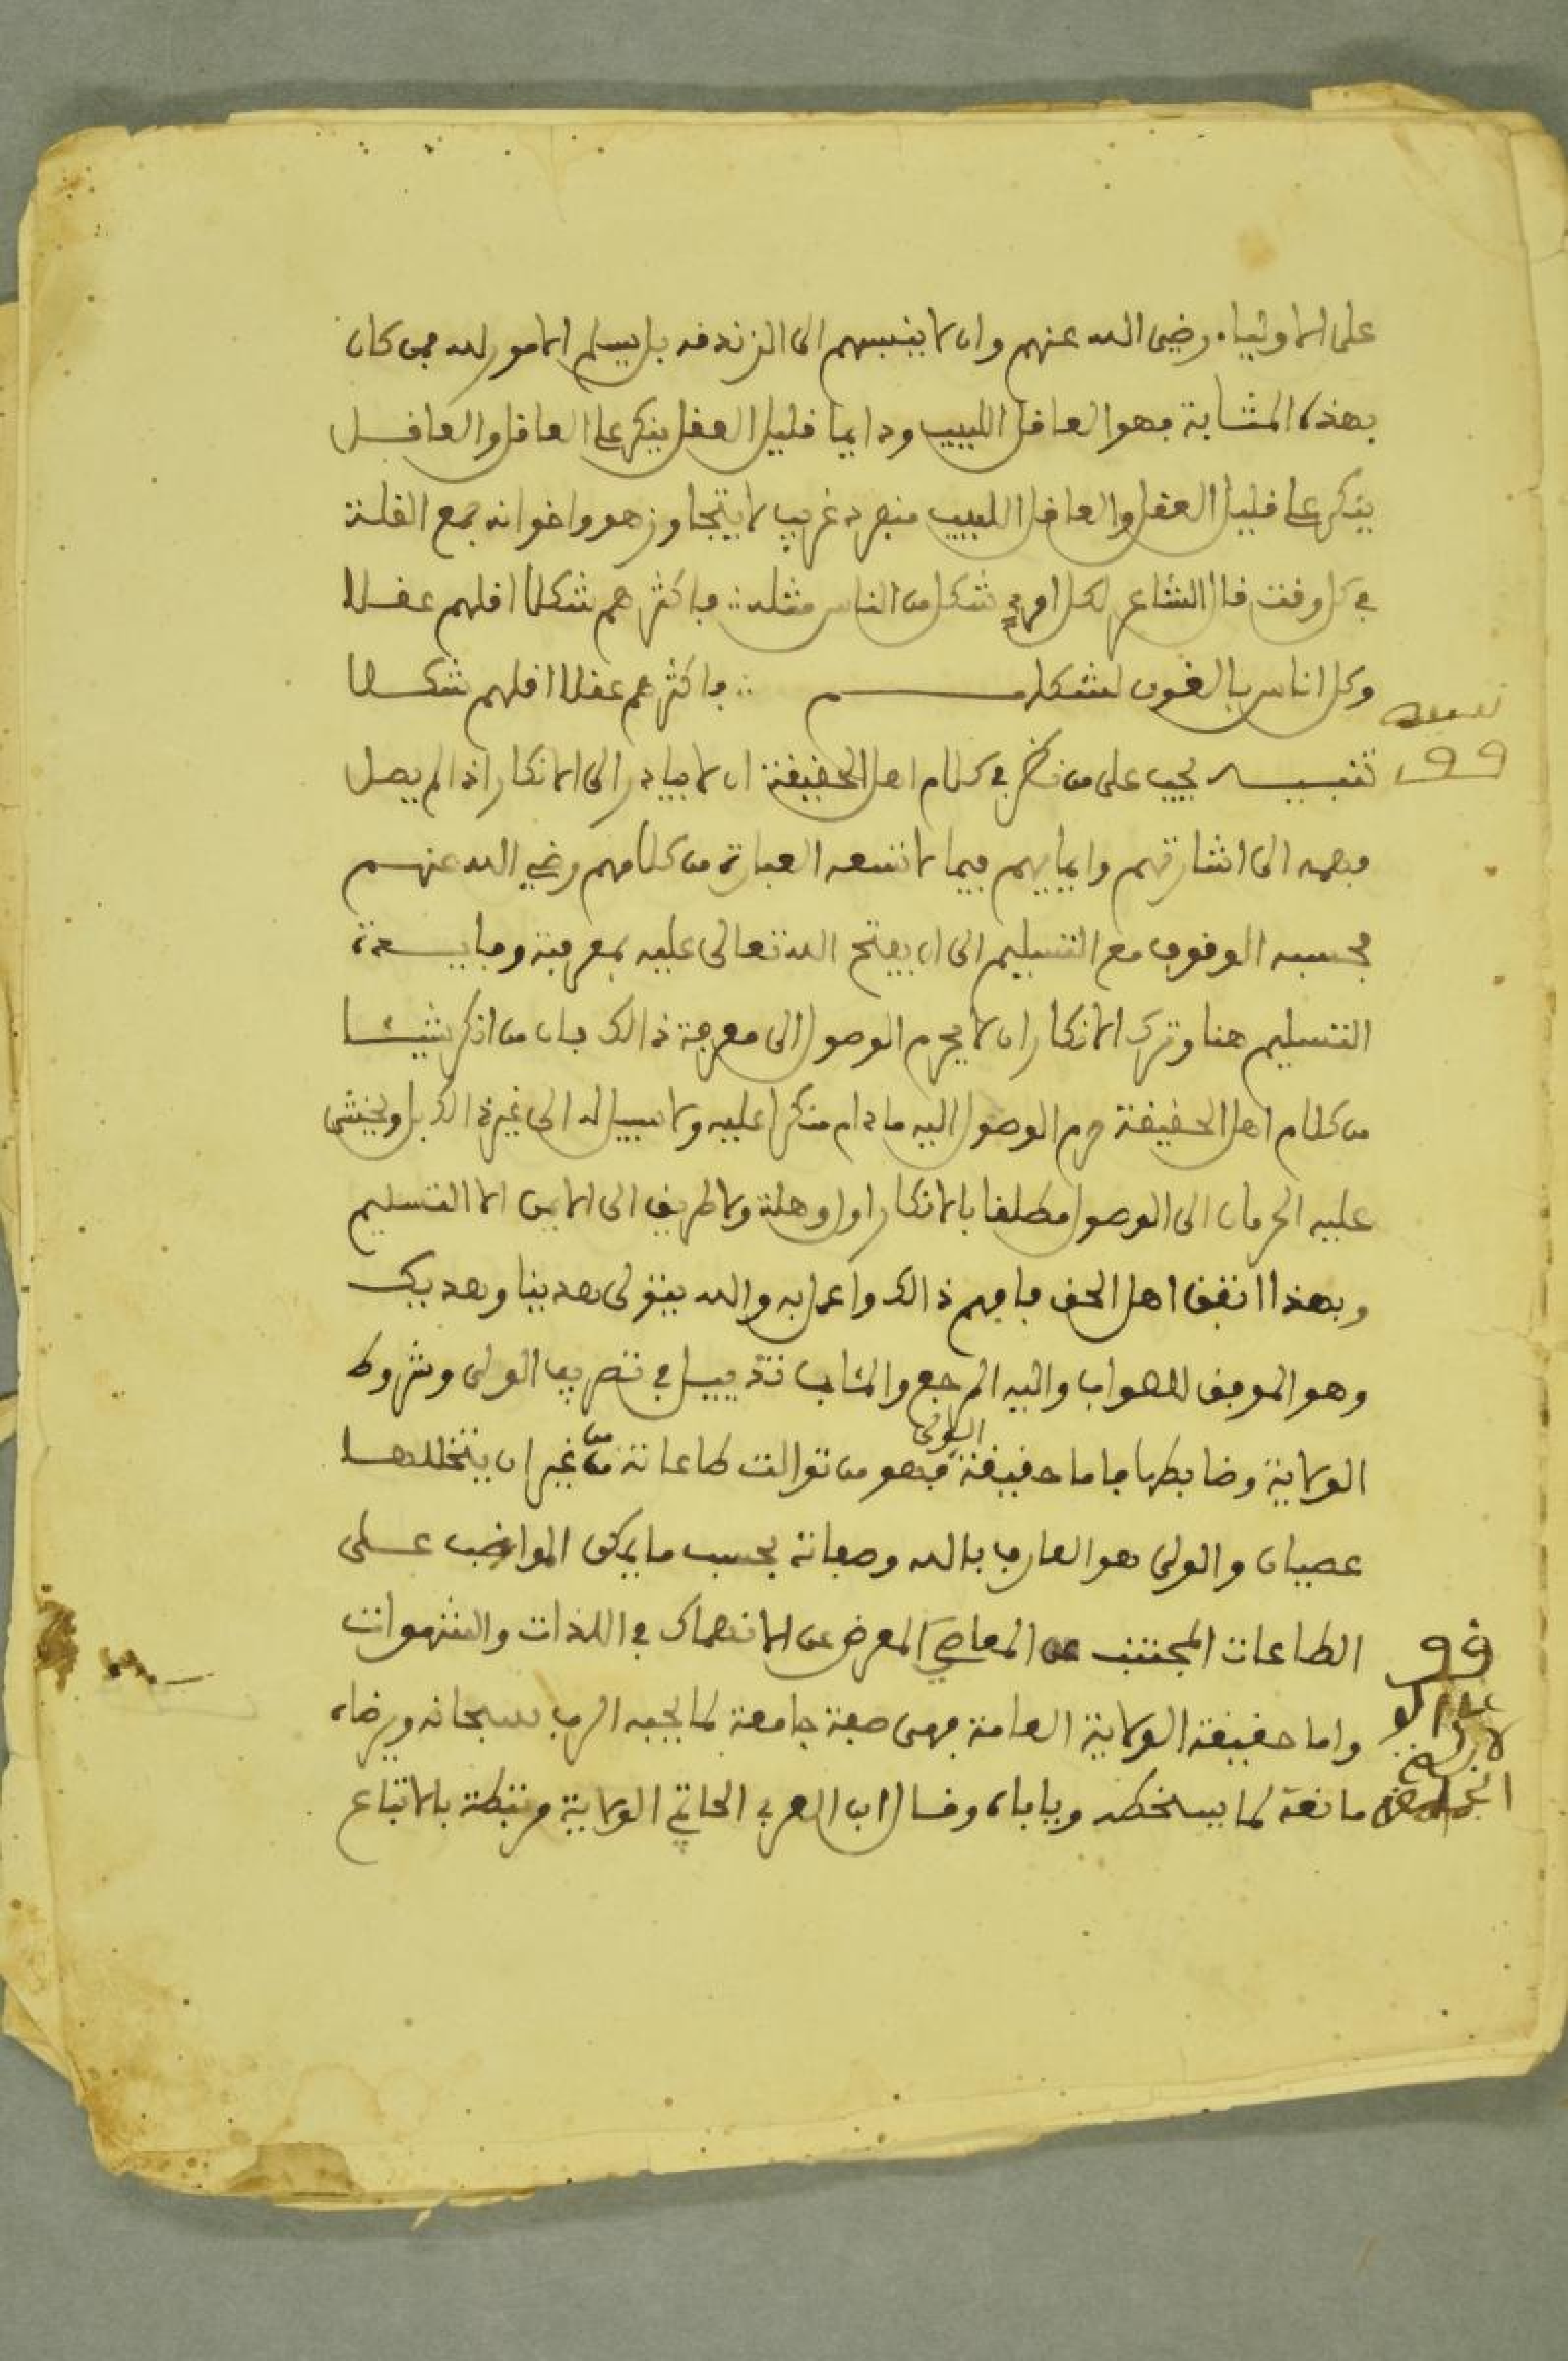 على الاولياء رضي الله عنهم وان لا ينسبهم الى الزندقه بل يسلم الامور لله فمن كان
بهذه المثابة فهو العاقل اللبيب ودايما قليل العقل ينكر على العاقل والعاقل
ينكر على قليل العقل والعاقل اللبيب منفرد غريب لا يتجاوز هو واخوانه جمع القلة
في كل وقت قال الشاعر لكل امرئ شكل من الناس مثله ∴ فاكثرهم شكلا اقلهم عقلا
وكل اناس يالفون لشكلهم ∴ فاكثرهم عقلا اقلهم شكلا
تنبيه يجب على من نظر في كلام اهل الحقيقة ان لا يبادر الى الانكار اذا لم يصل
فهمه الى اشارتهم وايمايهم فيما لا تسعه العبارة من كلامهم رضي الله عنهم
فحسبه الوقوف مع التسليم الى ان يفتح الله تعالى عليه بمعرفته وفايدة
التسليم هنا وترك الانكار ان لا يحرم الوصول الى معرفة ذالك فان من انكر شيئا
من كلام اهل الحقيقة حرم الوصول اليه ما دام منكرا عليه ولا سبيل له الى غير ذالك بل ويخشى
عليه الحرمان الى الوصول مطلقا بالانكار اول وهلة ولا طريق الى الايمن الا التسليم
وبهذا اتفق اهل الحق فافهم ذالك واعمل به والله يتولى هدينا وهديك
وهو الموفق للصواب واليه المرجع والمئاب تذييل في تصريف الولي وشروط
الولاية وضابطها فاما حقيقة الولي فهو من توالت طاعاته من غير ان يتخللها
عصيان والولي هو العارف بالله وصفاته بحسب ما يمكن المواظب على
الطاعات المجتنب عن المعاصي المعرض عن الانهماك في اللذات والشهوات
واما حقيقة الولاية العامة فهي صفة جامعة لما يحبه الرب سبحانه ويرضاه
مانعة لما يسخطه وياباه وقال ابن العربي الحاتمي الولاية مرتبطة بالاتباع